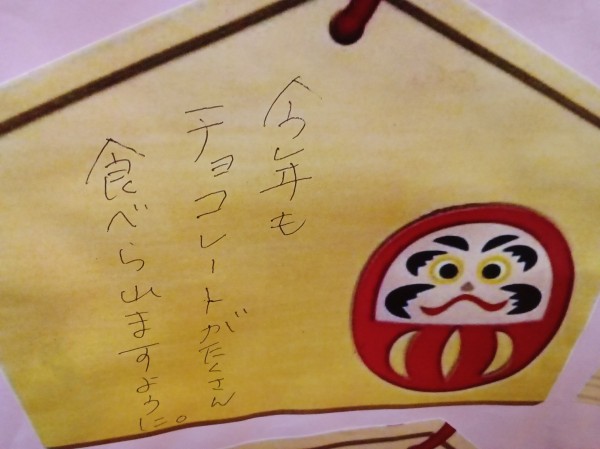 今年も
チョコレートがたくさん
食べら出ますように。